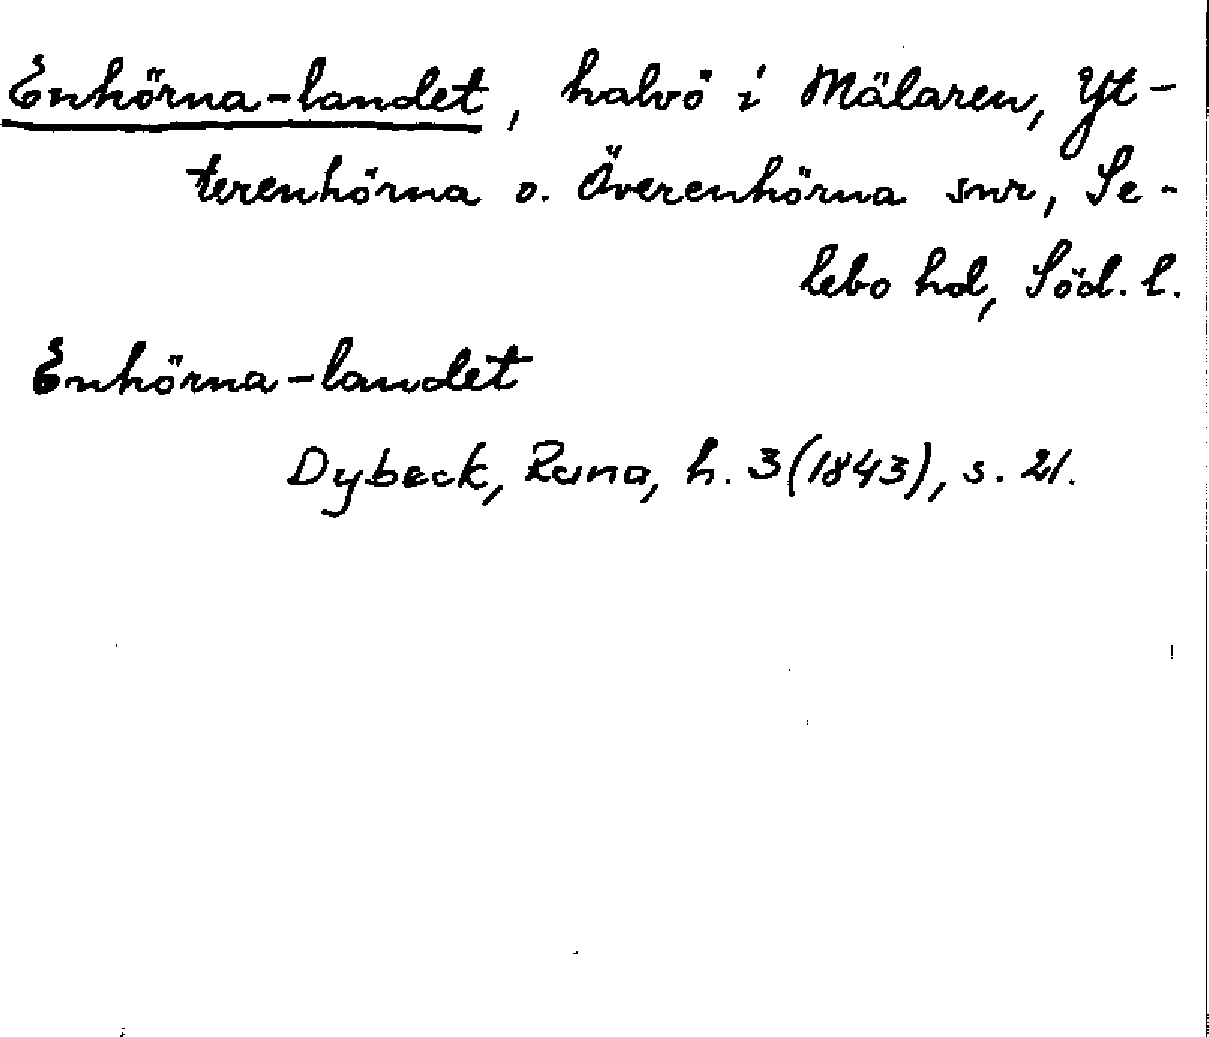 Enhörna-landet, halvö i Mälaren, Yt-
terenhörna o. Överenhörna snr, Se-
lebo hd, Söd. l.
Enhörna-landet
Dybeck, Runa, h. 3 (1843), s. 21.